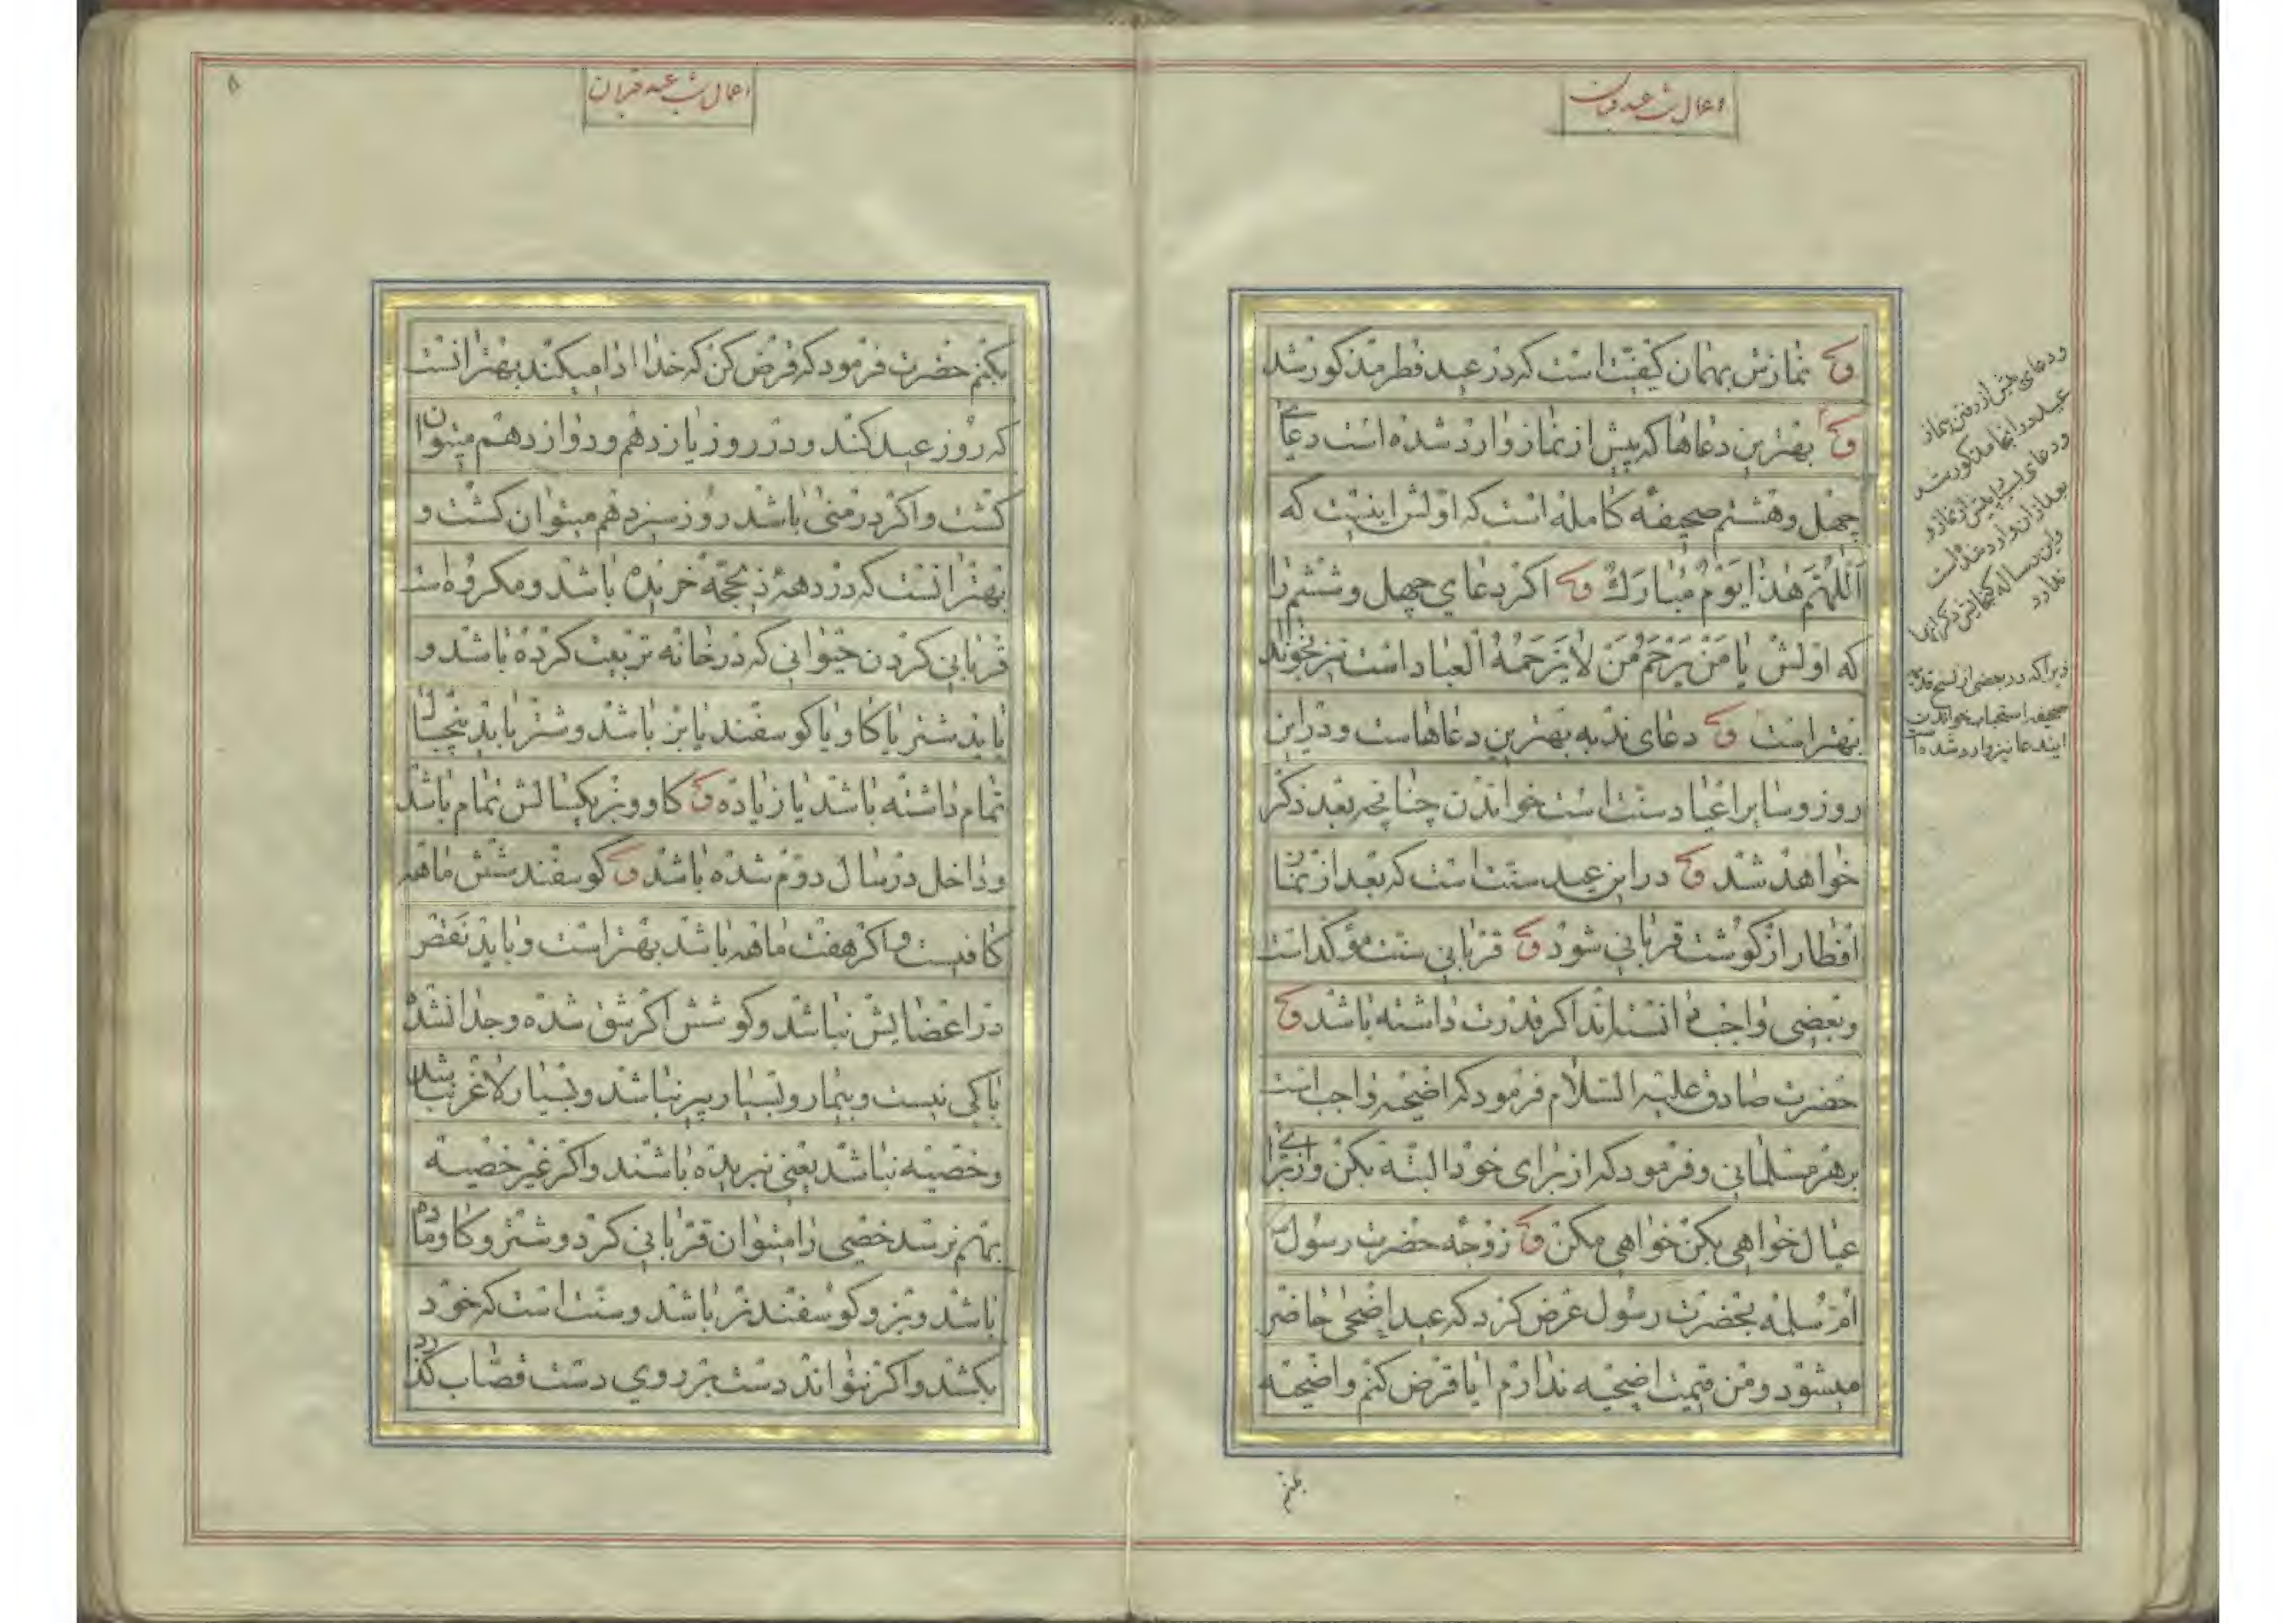 اعمال شب عید قربان
ق نمازش بهمان کیفیت است که در عید فطر مذکور شد
ق بهترین دعاها که پیش از نماز وارد شده است دعای
چهل و هشتم صحیفه کامله است که اولش اینست که
اَللّهُمَّ هذا یَوْمٌ مُبارَکٌ ق اکر دعای چهل و ششم را
که اولش یا مَنْ یَرْحَمُ مَنْ لا یَرْحَمُهُ الْعِباد است نیز بخواند
بهتر است ق دعای ندبه بهترین دعاهاست و در این
روز و سایر اعیاد سنت است خواندن چنانچه بعد ذکر
خواهد شد ق در این عید سنت است که بعد از نماز
افطار از کوشت قربانی شود ق قربانی سنت مؤکد است
و بعضی واجب دانسته‌اند اکر قدرت داشته باشد ق
حضرت صادق علیه السلام فرمود که اضحیه واجب است
بر هر مسلمانی و فرمود که از برای خود البته بکن و از برای
عیال خواهی بکن خواهی مکن ق زوجه حضرت رسول
ام سلمه بحضرت رسول عرض کرد که عید اضحی حاضر
میشود و من قیمت اضحیه ندارم ایا قرض کنم و اضحیه
بکنم
و دعای پیش از رفتن نماز
عید در اینجا مذکور
و دعای پیش از نماز و
بعد از آن وارد شده است
این رساله کنجایش ذکر انها
ندارد
زیرا که در بعضی از نسخ قدیمه
صحیفه استحباب خواندن
ایندعا نیز وارد شده است
۸
اعمال شب عید قربان
بکنم حضرت فرمود که قرض کن که خدا ادا میکند بهتر انست
که روز عید کند و در روز یازدهم و دوازدهم میتوان
کشت و اکر در منی باشد روز سیزدهم میتوان کشت و
بهتر انست که در دهه ذیحجه خریده باشد و مکروه است
قربانی کردن حیوانی که در خانه تربیت کرده باشد و
باید شتر یا کاو یا کوسفند یا بز باشد و شتر باید پنجسال
تمام داشته باشد یا زیاده ق کاو و بز یکسالش تمام باشد
و داخل در سال دوم شده باشد ق کوسفند شش ماهه
کافیست و اکر هفت ماهه باشد بهتر است و باید نقص
در اعضایش نباشد و کوشش اکر شق شده و جدا نشده
باکی نیست و بیمار و بسیار پیر نباشد و بسیار لاغر نباشد
و خصیه نباشد یعنی نبریده باشند و اکر غیر خصیه
بهم نرسد خصی را میتوان قربانی کرد و شتر و کاو ماده
باشد و بز و کوسفند نر باشد و سنت است که خود
بکشد و اکر نتواند دست بر روی دست قصاب کذارد